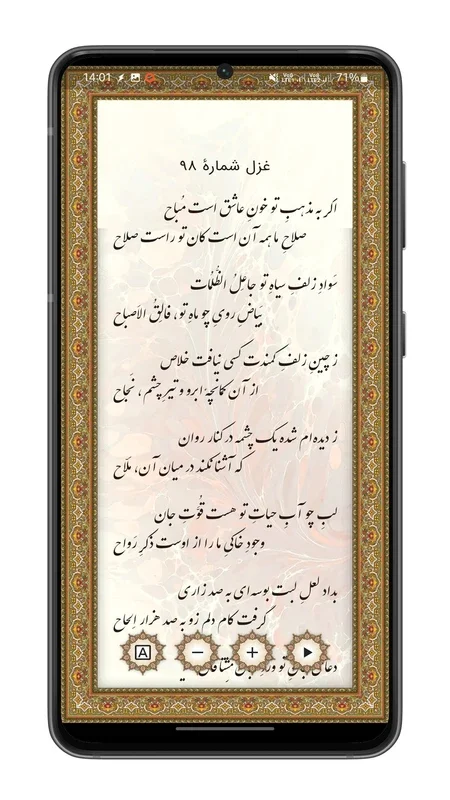 14:01 71%
غزل شمارهٔ ۹۸
اگر به مذهبِ تو خونِ عاشق است مُباح
صلاحِ ما همه آن است کان تو راست صلاح
سَوادِ زلفِ سیاهِ تو جاعِلُ الظُّلُمات
بَیاضِ رویِ چو ماهِ تو، فالِقُ الاَصباح
ز چینِ زلفِ کمندت کسی نیافت خلاص
از آن کمانچهٔ ابرو و تیرِ چشم، نَجاح
ز دیده‌ام شده یک چشمه در کنار روان
که آشنا نکند در میان آن، ملّاح
لبِ چو آبِ حیاتِ تو هست قُوَّتِ جان
وجودِ خاکیِ ما را از اوست ذکرِ رَواح
بداد لعلِ لبت بوسه‌ای به صد زاری
گرفت کام دلم زو به صد هزار اِلحاح
دعای تو
A − +